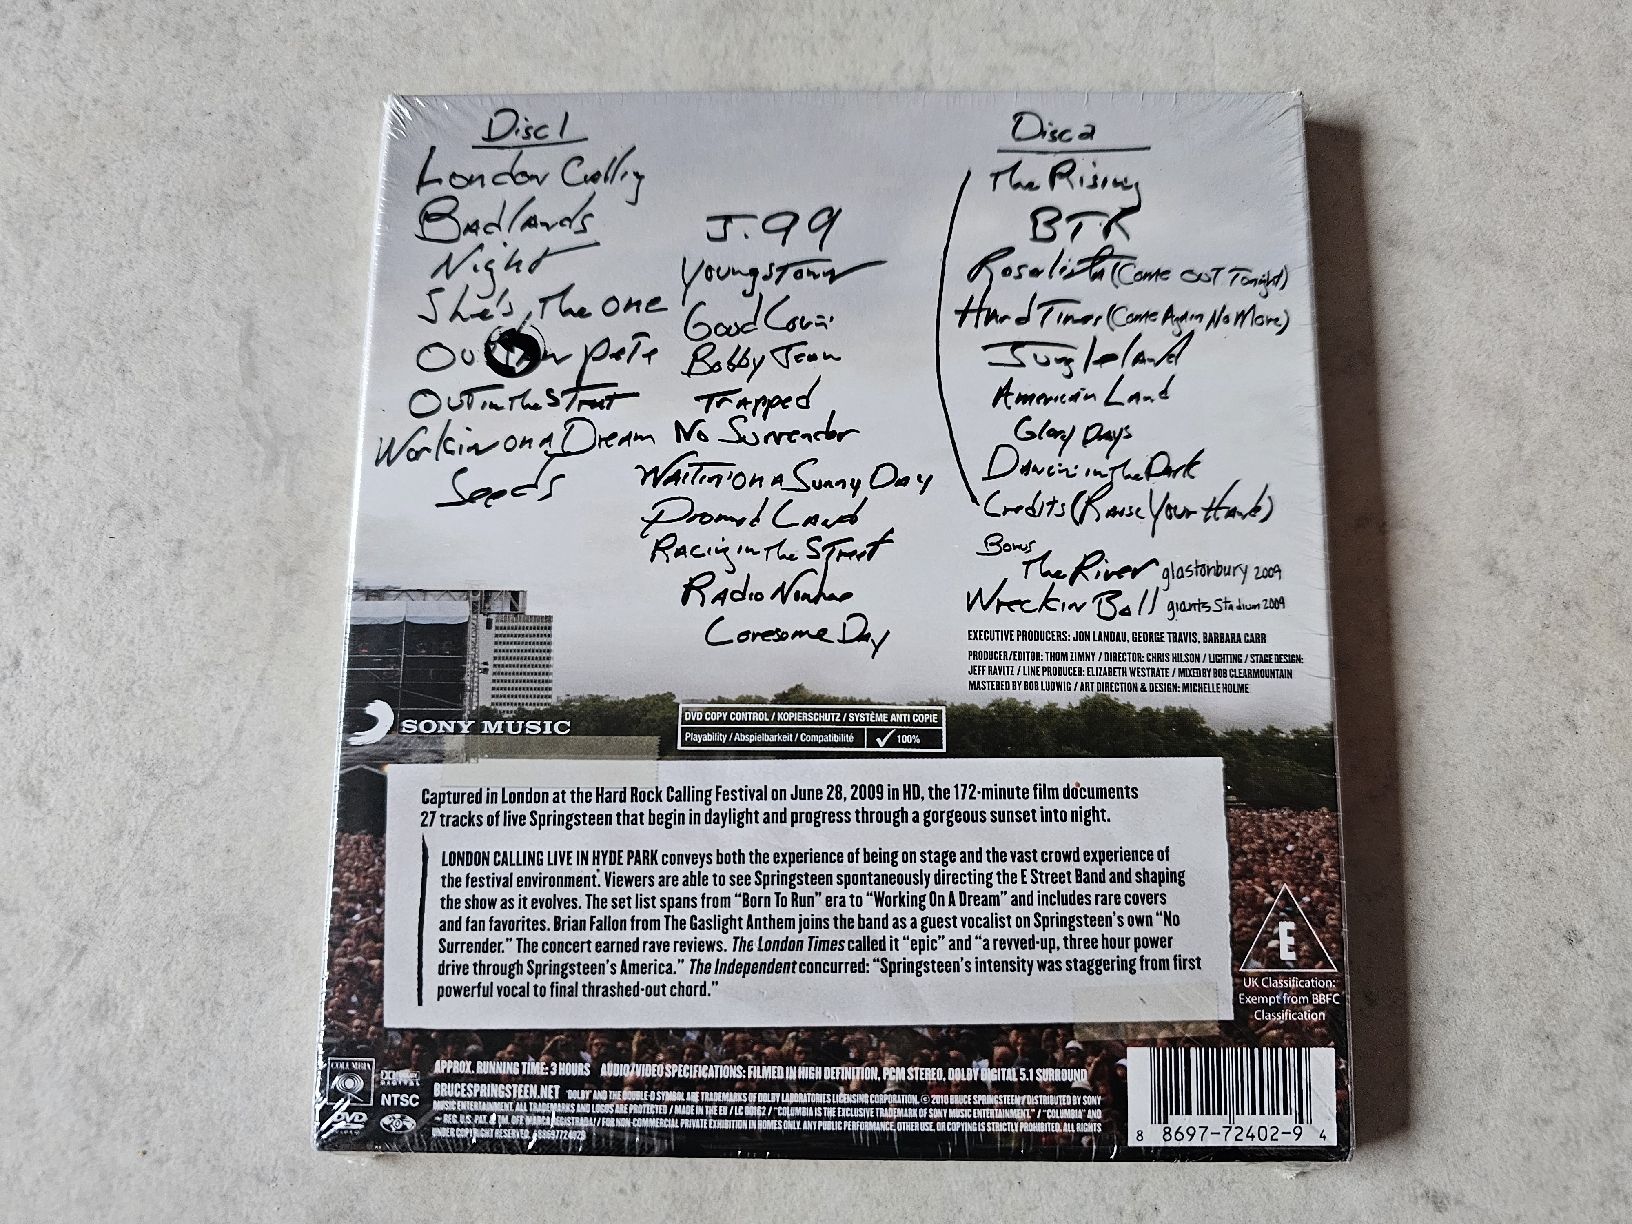 Disc 1
London Calling
Badlands
Night
She's the One
Outlaw Pete
Out in the Street
Workin on a Dream
Seeds
J. 99
Youngstown
Good Lovin'
Bobby Jean
Trapped
No Surrender
Waitin' on a Sunny Day
Promised Land
Racing in the Street
Radio Nowhere
Lonesome Day
Disc 2
The Rising
BTR
Rosalita (Come Out Tonight)
Hard Times (Come Again No More)
Jungleland
American Land
Glory Days
Dancin' in the Dark
Credits (Raise Your Hand)
Bonus
The River glastonbury 2009
Wreckin Ball giants Stadium 2009
EXECUTIVE PRODUCERS: JON LANDAU, GEORGE TRAVIS, BARBARA CARR
PRODUCER/EDITOR: THOM ZIMNY / DIRECTOR: CHRIS HILSON / LIGHTING / STAGE DESIGN:
JEFF RAVITZ / LINE PRODUCER: ELIZABETH WESTRATE / MIXED BY BOB CLEARMOUNTAIN
MASTERED BY BOB LUDWIG / ART DIRECTION & DESIGN: MICHELLE HOLME
SONY MUSIC
DVD COPY CONTROL / KOPIERSCHUTZ / SYSTÈME ANTI COPIE
Playability / Abspielbarkeit / Compatibilité 100%
Captured in London at the Hard Rock Calling Festival on June 28, 2009 in HD, the 172-minute film documents
27 tracks of live Springsteen that begin in daylight and progress through a gorgeous sunset into night.
LONDON CALLING LIVE IN HYDE PARK conveys both the experience of being on stage and the vast crowd experience of
the festival environment. Viewers are able to see Springsteen spontaneously directing the E Street Band and shaping
the show as it evolves. The set list spans from "Born To Run" era to "Working On A Dream" and includes rare covers
and fan favorites. Brian Fallon from The Gaslight Anthem joins the band as a guest vocalist on Springsteen's own "No
Surrender." The concert earned rave reviews. The London Times called it "epic" and "a revved-up, three hour power
drive through Springsteen's America." The Independent concurred: "Springsteen's intensity was staggering from first
powerful vocal to final thrashed-out chord."
E
UK Classification:
Exempt from BBFC
Classification
COLUMBIA
DOLBY DIGITAL
NTSC
DVD
VIDEO
APPROX. RUNNING TIME: 3 HOURS AUDIO/VIDEO SPECIFICATIONS: FILMED IN HIGH DEFINITION, PCM STEREO, DOLBY DIGITAL 5.1 SURROUND
BRUCESPRINGSTEEN.NET "DOLBY" AND THE DOUBLE-D SYMBOL ARE TRADEMARKS OF DOLBY LABORATORIES LICENSING CORPORATION. © 2010 BRUCE SPRINGSTEEN / DISTRIBUTED BY SONY
MUSIC ENTERTAINMENT. ALL TRADEMARKS AND LOGOS ARE PROTECTED / MADE IN THE EU / LC 00162 / "COLUMBIA IS THE EXCLUSIVE TRADEMARK OF SONY MUSIC ENTERTAINMENT." / "COLUMBIA" AND
REG. U.S. PAT. & TM. OFF. MARCA REGISTRADA / FOR NON-COMMERCIAL PRIVATE EXHIBITION IN HOMES ONLY. ANY PUBLIC PERFORMANCE, OTHER USE, OR COPYING IS STRICTLY PROHIBITED. ALL RIGHTS
UNDER COPYRIGHT RESERVED. 88697724029
8 8697-72402-9 4